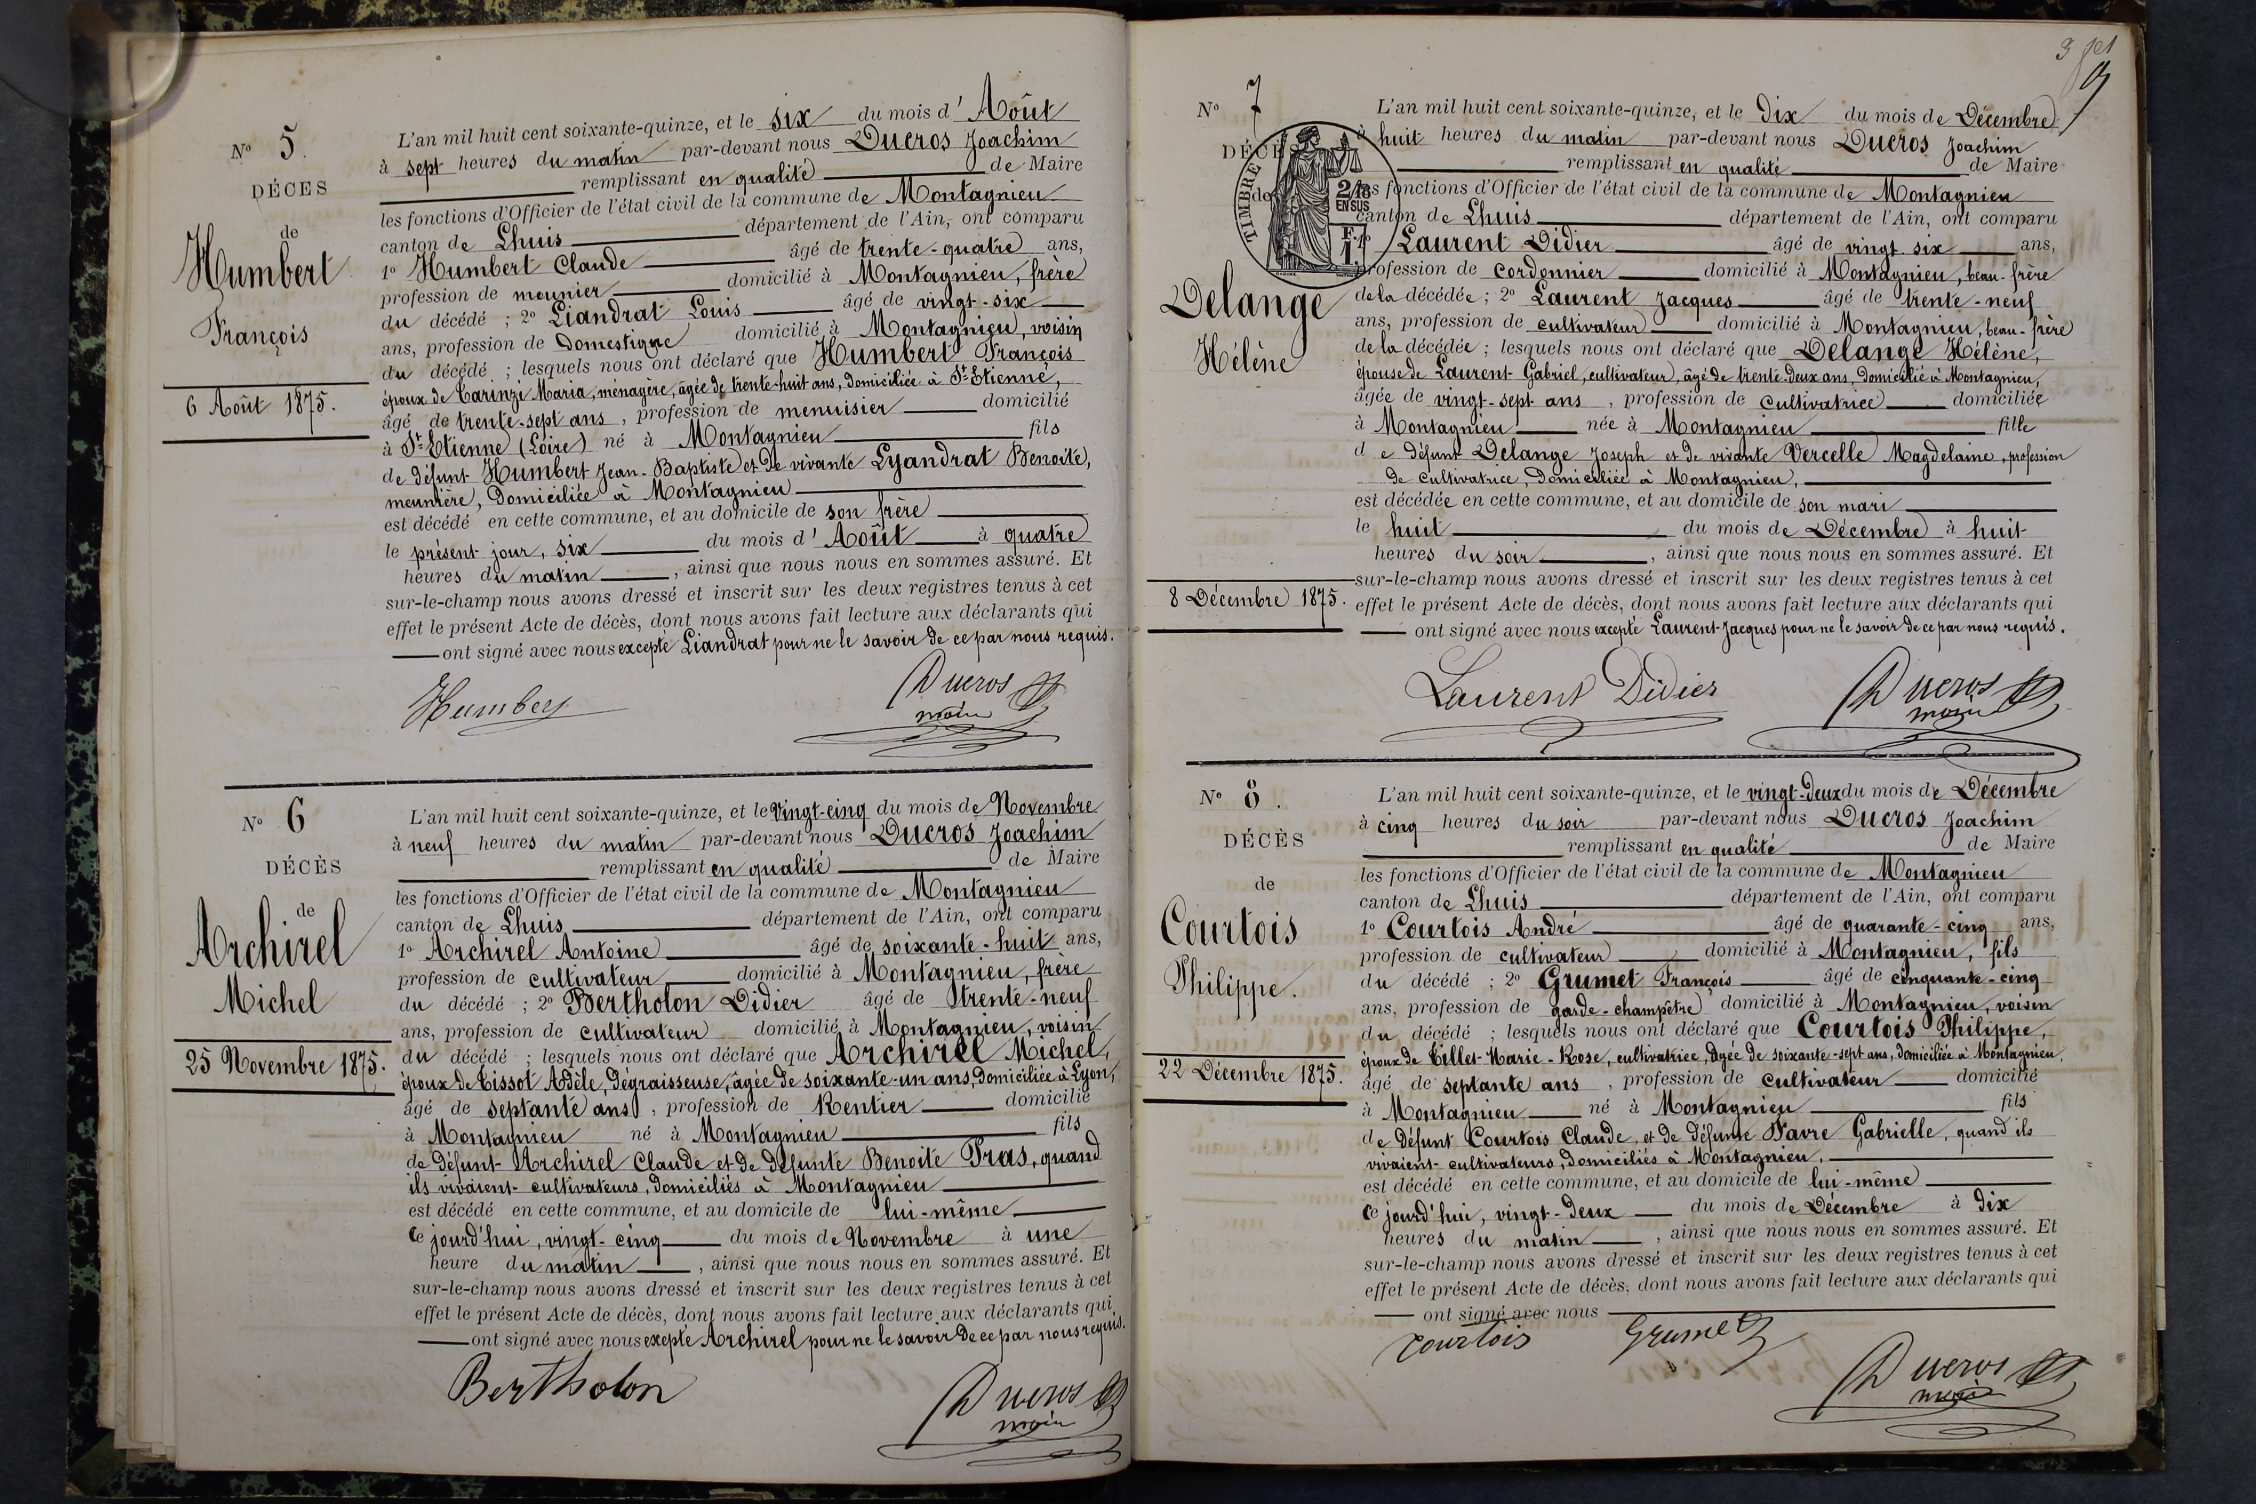 N° 5.
DÉCES
de
Humbert
François
6 Août 1875.
L'an mil huit cent soixante-quinze, et le six du mois d' Août
à sept heures du matin par-devant nous Ducros Joachim
remplissant en qualité de Maire
les fonctions d'Officier de l'état civil de la commune de Montagnieu
canton de Lhuis département de l'Ain, ont comparu
1° Humbert Claude âgé de trente-quatre ans,
profession de meunier domicilié à Montagnieu, frère
du décédé ; 2° Liandrat Louis âgé de vingt-six
ans, profession de Domestique domicilié à Montagnieu, voisin
du décédé ; lesquels nous ont déclaré que Humbert François
époux de Carinzi Maria, ménagère, âgée de trente-huit ans, domiciliée à St-Etienne,
âgé de trente-sept ans, profession de menuisier domicilié
à St-Etienne (Loire) né à Montagnieu fils
de défunt Humbert Jean-Baptiste et de vivante Lyandrat Benoite,
meunière, Domiciliée à Montagnieu
est décédé en cette commune, et au domicile de son frère
le présent jour, six du mois d' Août à quatre
heures du matin, ainsi que nous nous en sommes assuré. Et
sur-le-champ nous avons dressé et inscrit sur les deux registres tenus à cet
effet le présent Acte de décès, dont nous avons fait lecture aux déclarants qui
ont signé avec nous excepté Liandrat pour ne le savoir de ce par nous requis.
Humbert
Ducros
maire
N° 6
DÉCÈS
de
Archirel
Michel
25 Novembre 1875.
L'an mil huit cent soixante-quinze, et le Vingt-cinq du mois de Novembre
à neuf heures du matin par-devant nous Ducros Joachim
remplissant en qualité de Maire
les fonctions d'Officier de l'état civil de la commune de Montagnieu
canton de Lhuis département de l'Ain, ont comparu
1° Archirel Antoine âgé de soixante-huit ans,
profession de cultivateur domicilié à Montagnieu, frère
du décédé ; 2° Bertholon Didier âgé de trente-neuf
ans, profession de cultivateur domicilié à Montagnieu, voisin
du décédé ; lesquels nous ont déclaré que Archirel Michel,
époux de Tissot Adèle, Dégraisseuse, âgée de soixante-un ans, Domiciliée à Lyon,
âgé de septante ans, profession de Rentier domicilié
à Montagnieu né à Montagnieu fils
de défunt Archirel Claude et de défunte Benoite Pras, quand
ils vivaient cultivateurs, domiciliés à Montagnieu
est décédé en cette commune, et au domicile de lui-même
ce jourd'hui, vingt-cinq du mois de Novembre à une
heure du matin, ainsi que nous nous en sommes assuré. Et
sur-le-champ nous avons dressé et inscrit sur les deux registres tenus à cet
effet le présent Acte de décès, dont nous avons fait lecture aux déclarants qui
ont signé avec nous excepté Archirel pour ne le savoir de ce par nous requis.
Bertholon
Ducros
maire
N° 7
DÉCÈS
de
TIMBRE
2/10
EN SUS
Delange
Hélène
8 Décembre 1875.
L'an mil huit cent soixante-quinze, et le Dix du mois de Décembre
à huit heures du matin par-devant nous Ducros Joachim
remplissant en qualité de Maire
les fonctions d'Officier de l'état civil de la commune de Montagnieu
canton de Lhuis département de l'Ain, ont comparu
1° Laurent Didier âgé de vingt six ans,
profession de cordonnier domicilié à Montagnieu, beau-frère
de la décédée ; 2° Laurent Jacques âgé de trente-neuf
ans, profession de cultivateur domicilié à Montagnieu, beau-frère
de la décédée ; lesquels nous ont déclaré que Delange Hélène,
épouse de Laurent Gabriel, cultivateur, âgé de trente-deux ans, Domicilié à Montagnieu,
âgée de vingt-sept ans, profession de cultivatrice domiciliée
à Montagnieu née à Montagnieu fille
de défunt Delange Joseph et de vivante Vercelle Magdelaine, profession
de cultivatrice, Domiciliée à Montagnieu,
est décédée en cette commune, et au domicile de son mari
le huit du mois de Décembre à huit
heures du soir, ainsi que nous nous en sommes assuré. Et
sur-le-champ nous avons dressé et inscrit sur les deux registres tenus à cet
effet le présent Acte de décès, dont nous avons fait lecture aux déclarants qui
ont signé avec nous excepté Laurent Jacques pour ne le savoir de ce par nous requis.
Laurent Didier
Ducros
maire
N° 8.
DÉCÈS
de
Courtois
Philippe.
22 Décembre 1875.
L'an mil huit cent soixante-quinze, et le vingt-deux du mois de Décembre
à cinq heures du soir par-devant nous Ducros Joachim
remplissant en qualité de Maire
les fonctions d'Officier de l'état civil de la commune de Montagnieu
canton de Lhuis département de l'Ain, ont comparu
1° Courtois André âgé de quarante-cinq ans,
profession de cultivateur domicilié à Montagnieu, fils
du décédé ; 2° Grumet François âgé de cinquante-cinq
ans, profession de garde-champêtre domicilié à Montagnieu, voisin
du décédé ; lesquels nous ont déclaré que Courtois Philippe,
époux de Tillet Marie-Rose, cultivatrice, âgée de soixante-sept ans, domiciliée à Montagnieu,
âgé de septante ans, profession de cultivateur domicilié
à Montagnieu né à Montagnieu fils
de défunt Courtois Claude, et de défunte Favre Gabrielle, quand ils
vivaient cultivateurs, domiciliés à Montagnieu,
est décédé en cette commune, et au domicile de lui-même
ce jourd'hui, vingt-deux du mois de Décembre à dix
heures du matin, ainsi que nous nous en sommes assuré. Et
sur-le-champ nous avons dressé et inscrit sur les deux registres tenus à cet
effet le présent Acte de décès, dont nous avons fait lecture aux déclarants qui
ont signé avec nous
Courtois
Grumet
Ducros
maire